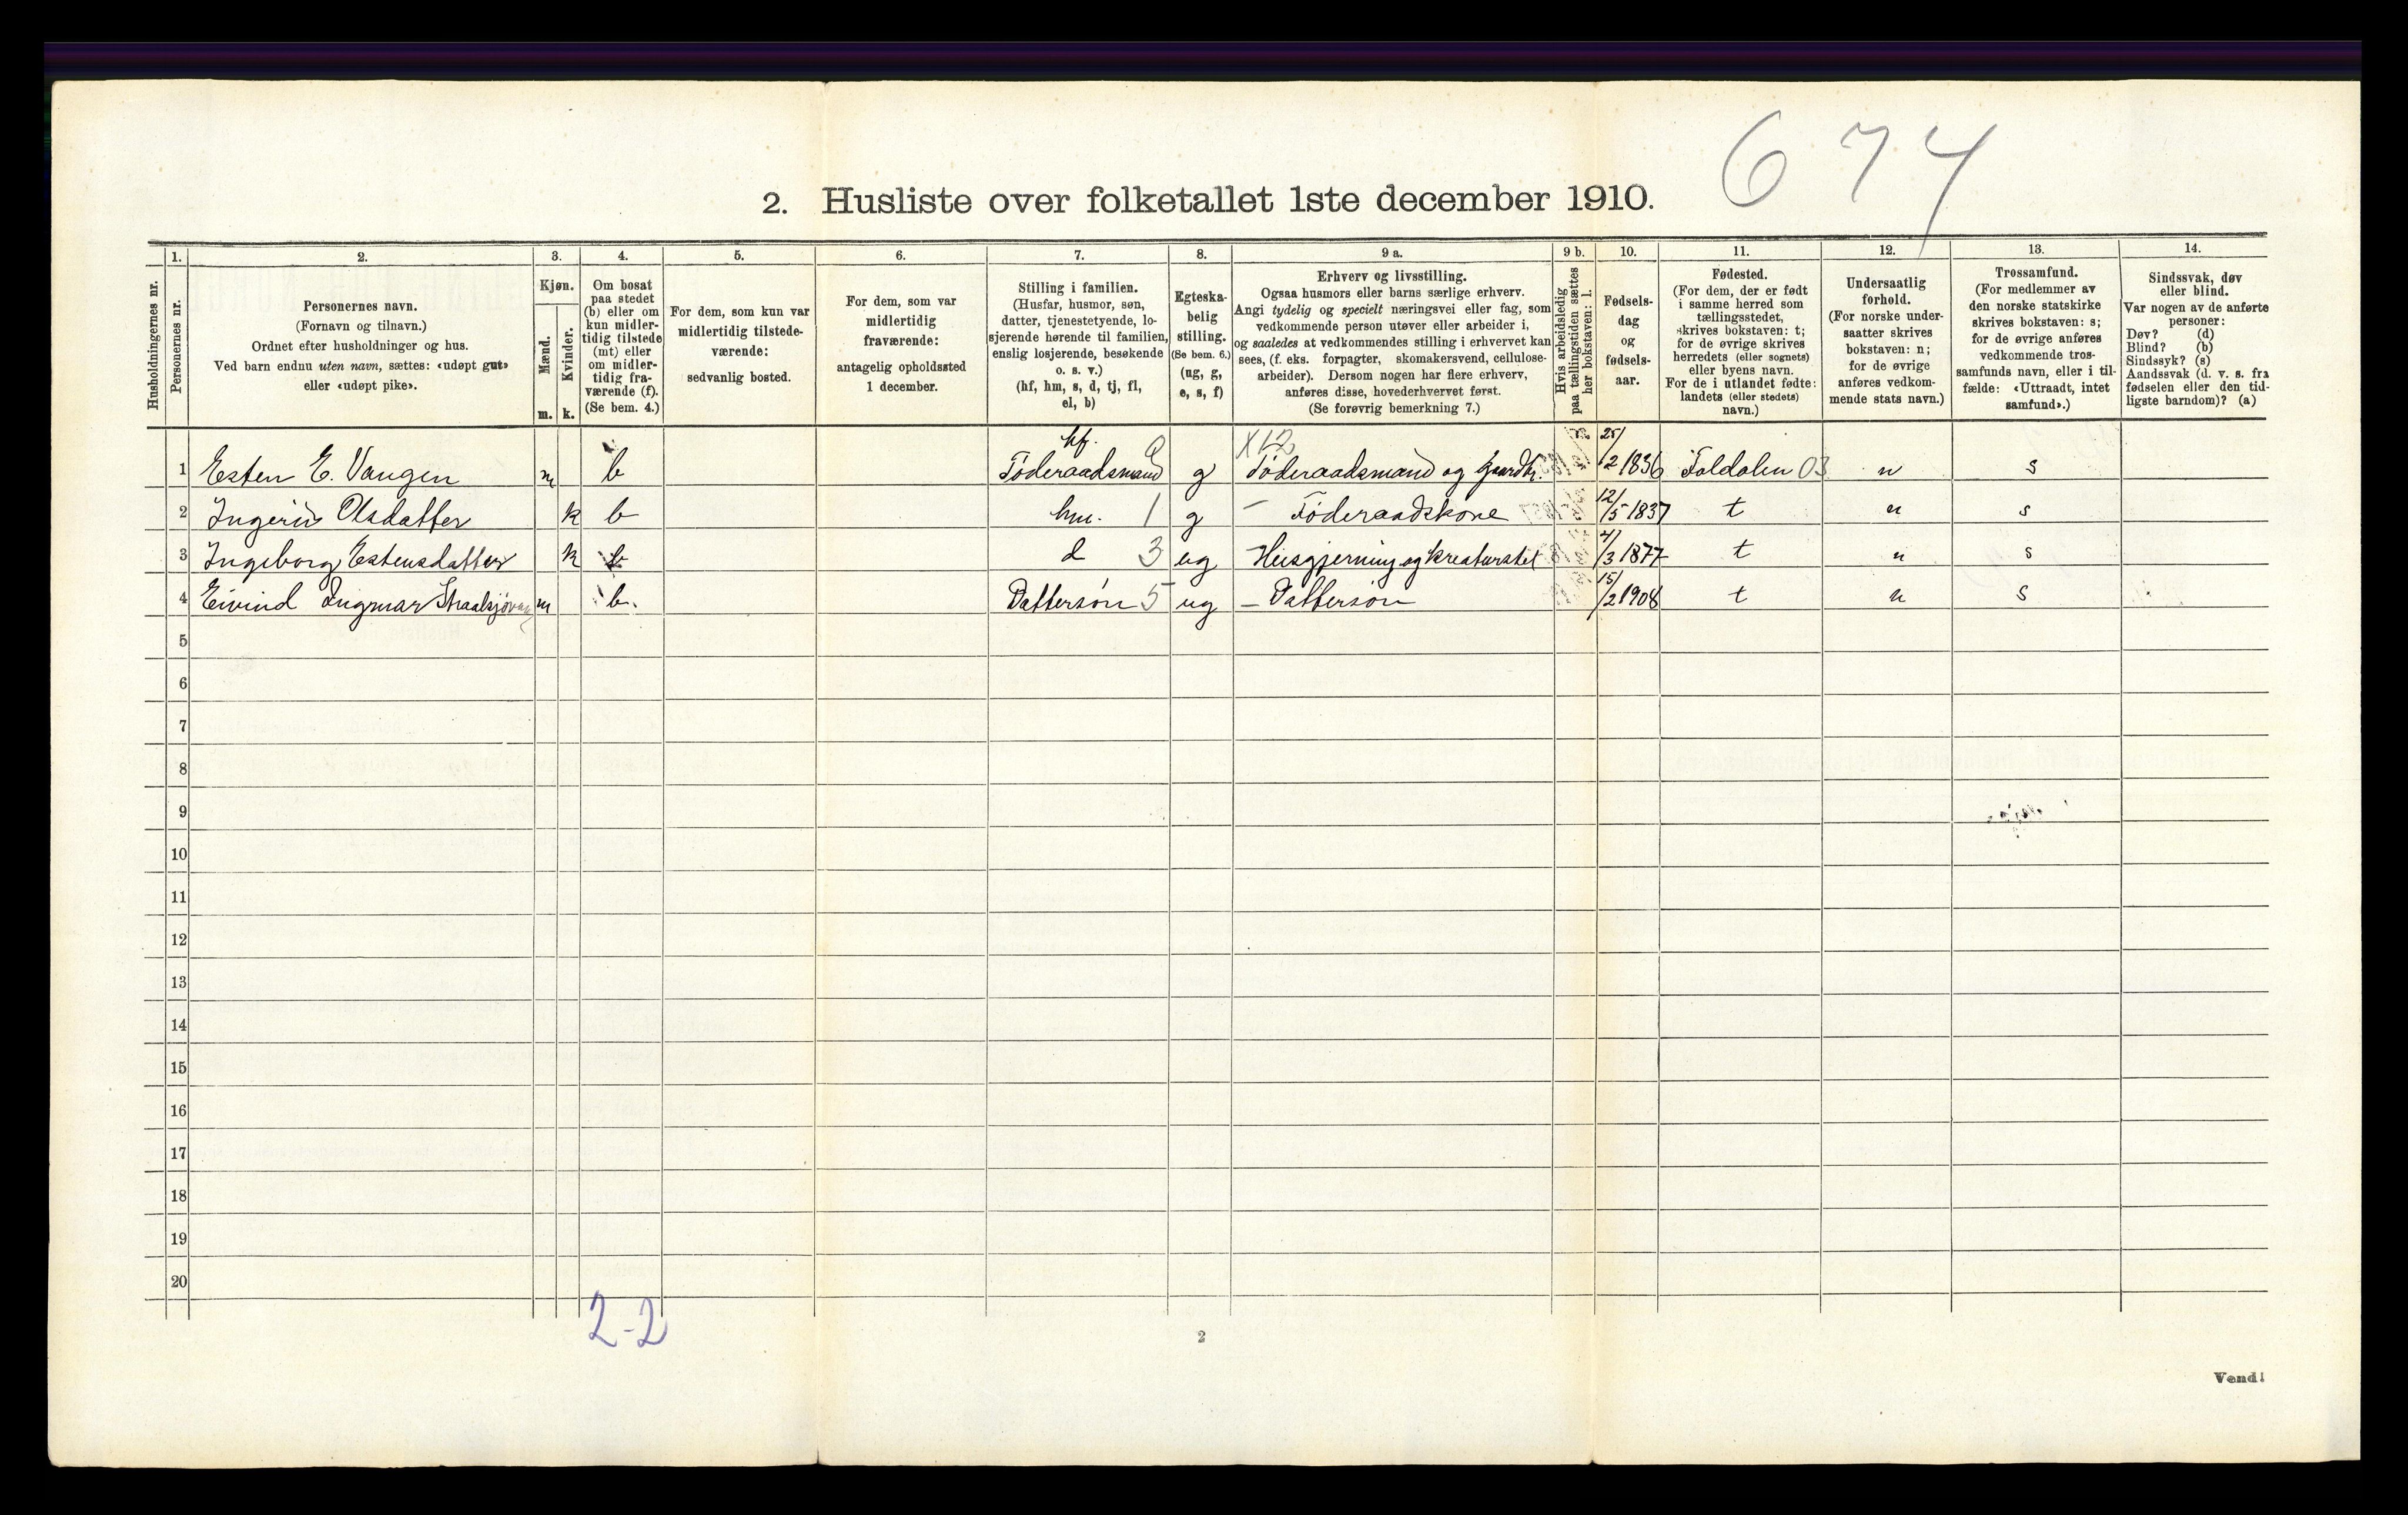 674
2. Husliste over folketallet 1ste december 1910.
Husholdningernes nr.
1.
Personernes nr.
2.
Personernes navn.
(Fornavn og tilnavn.)
Ordnet efter husholdninger og hus.
Ved barn endnu uten navn, sættes: «udøpt gut»
eller «udøpt pike».
3.
Kjøn.
Mænd.
m.
Kvinder.
k.
4.
Om bosat
paa stedet
(b) eller om
kun midler-
tidig tilstede
(mt) eller
om midler-
tidig fra-
værende (f).
(Se bem. 4.)
5.
For dem, som kun var
midlertidig tilstede-
værende:
sedvanlig bosted.
6.
For dem, som var
midlertidig
fraværende:
antagelig opholdssted
1 december.
7.
Stilling i familien.
(Husfar, husmor, søn,
datter, tjenestetyende, lo-
sjerende hørende til familien,
enslig losjerende, besøkende
o. s. v.)
(hf, hm, s, d, tj, fl,
el, b)
8.
Egteska-
belig
stilling.
(Se bem. 6.)
(ug, g,
e, s, f)
9 a.
Erhverv og livsstilling.
Ogsaa husmors eller barns særlige erhverv.
Angi tydelig og specielt næringsvei eller fag, som
vedkommende person utøver eller arbeider i,
og saaledes at vedkommendes stilling i erhvervet kan
sees, (f. eks. forpagter, skomakersvend, cellulose-
arbeider). Dersom nogen har flere erhverv,
anføres disse, hovederhvervet først.
(Se forøvrig bemerkning 7.)
9 b.
Hvis arbeidsledig
paa tællingstiden sættes
her bokstaven: l.
10.
Fødsels-
dag
og
fødsels-
aar.
11.
Fødested.
(For dem, der er født
i samme herred som
tællingsstedet,
skrives bokstaven: t;
for de øvrige skrives
herredets (eller sognets)
eller byens navn.
For de i utlandet fødte:
landets (eller stedets)
navn.)
12.
Undersaatlig
forhold.
(For norske under-
saatter skrives
bokstaven: n;
for de øvrige
anføres vedkom-
mende stats navn.)
13.
Trossamfund.
(For medlemmer av
den norske statskirke
skrives bokstaven: s;
for de øvrige anføres
vedkommende tros-
samfunds navn, eller i til-
fælde: «Uttraadt, intet
samfund».)
14.
Sindssvak, døv
eller blind.
Var nogen av de anførte
personer:
Døv? (d)
Blind? (b)
Sindssyk? (s)
Aandssvak (d. v. s. fra
fødselen eller den tid-
ligste barndom)? (a)
hf. X12
1 Esten E. Vangen m b Føderaadsmand 0 g Føderaadsmand og Gaardbr. 25/2 1836 Foldalen 03 n s
2 Ingerid Olsdatter k b hm. 1 g – Føderaadskone 12/5 1837 t n s
3 Ingeborg Estensdatter k b d 3 ug Husgjerning og kreaturstel 4/3 1877 t n s
4 Eivind Ingmar Straalsjøvangen m b. Dattersøn 5 ug – Dattersøn 15/2 1908 t n s
5
6
7
8
9
10
11
12
13
14
15
16
17
18
19
20
2-2
2
Vend!